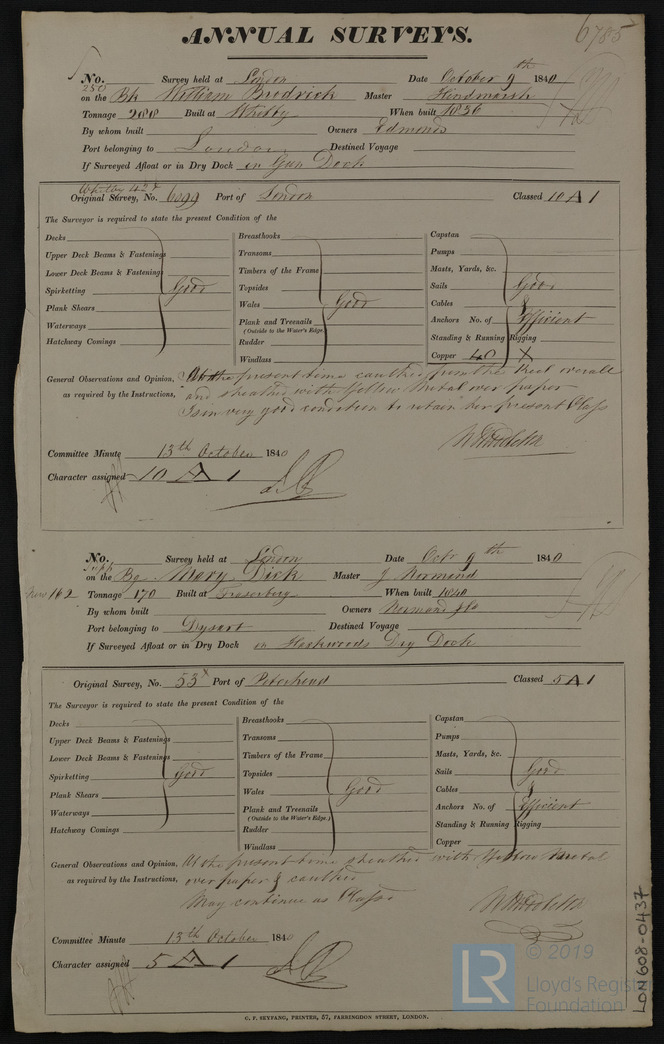 6785
ANNUAL SURVEYS.
No. 250 Survey held at London Date October 9th 1840
on the Bk William Brodrick Master Hindmarsh
Tonnage 288 Built at Whitby When built 1836
By whom built Owners Edmonds
Port belonging to London Destined Voyage
If Surveyed Afloat or in Dry Dock in Gun Dock
Whitby 42
Original Survey, No. 6099 Port of London Classed 10 A 1
The Surveyor is required to state the present Condition of the
Decks
Upper Deck Beams & Fastenings
Lower Deck Beams & Fastenings
Spirketting Good
Plank Shears
Waterways
Hatchway Comings
Breasthooks
Transoms
Timbers of the Frame
Topsides
Wales Good
Plank and Treenails
(Outside to the Water's Edge.)
Rudder
Windlass
Capstan
Pumps
Masts, Yards, &c.
Sails Good
Cables &
Anchors No. of Efficient
Standing & Running Rigging
Copper 40 X
General Observations and Opinion, At the present time caulked from the Keel overall
as required by the Instructions, and sheathed with Yellow Metal over paper
Is in very good condition to retain her present Class
Committee Minute 13th October 1840
Character assigned 10 A 1
No. Survey held at London Date Octr 9th 1840
on the Bg Mary Dick Master J Normand
New 162 Tonnage 170 Built at Fraserburg When built 1840
By whom built Owners Normand & Co
Port belonging to Dysart Destined Voyage
If Surveyed Afloat or in Dry Dock in Fleetwoods Dry Dock
Original Survey, No. 53 Port of Peterhead Classed 5 A 1
The Surveyor is required to state the present Condition of the
Decks
Upper Deck Beams & Fastenings
Lower Deck Beams & Fastenings
Spirketting Good
Plank Shears
Waterways
Hatchway Comings
Breasthooks
Transoms
Timbers of the Frame
Topsides
Wales Good
Plank and Treenails
(Outside to the Water's Edge.)
Rudder
Windlass
Capstan
Pumps
Masts, Yards, &c.
Sails Good
Cables &
Anchors No. of Efficient
Standing & Running Rigging
Copper
General Observations and Opinion, At the present time sheathed with Yellow Metal
as required by the Instructions, over paper & caulked
May continue as Classed
Committee Minute 13th October 1840
Character assigned 5 A 1
C. F. SEYFANG, PRINTER, 57, FARRINGDON STREET, LONDON.
LON608-0437
LR
© 2019
Lloyd's Register
Foundation